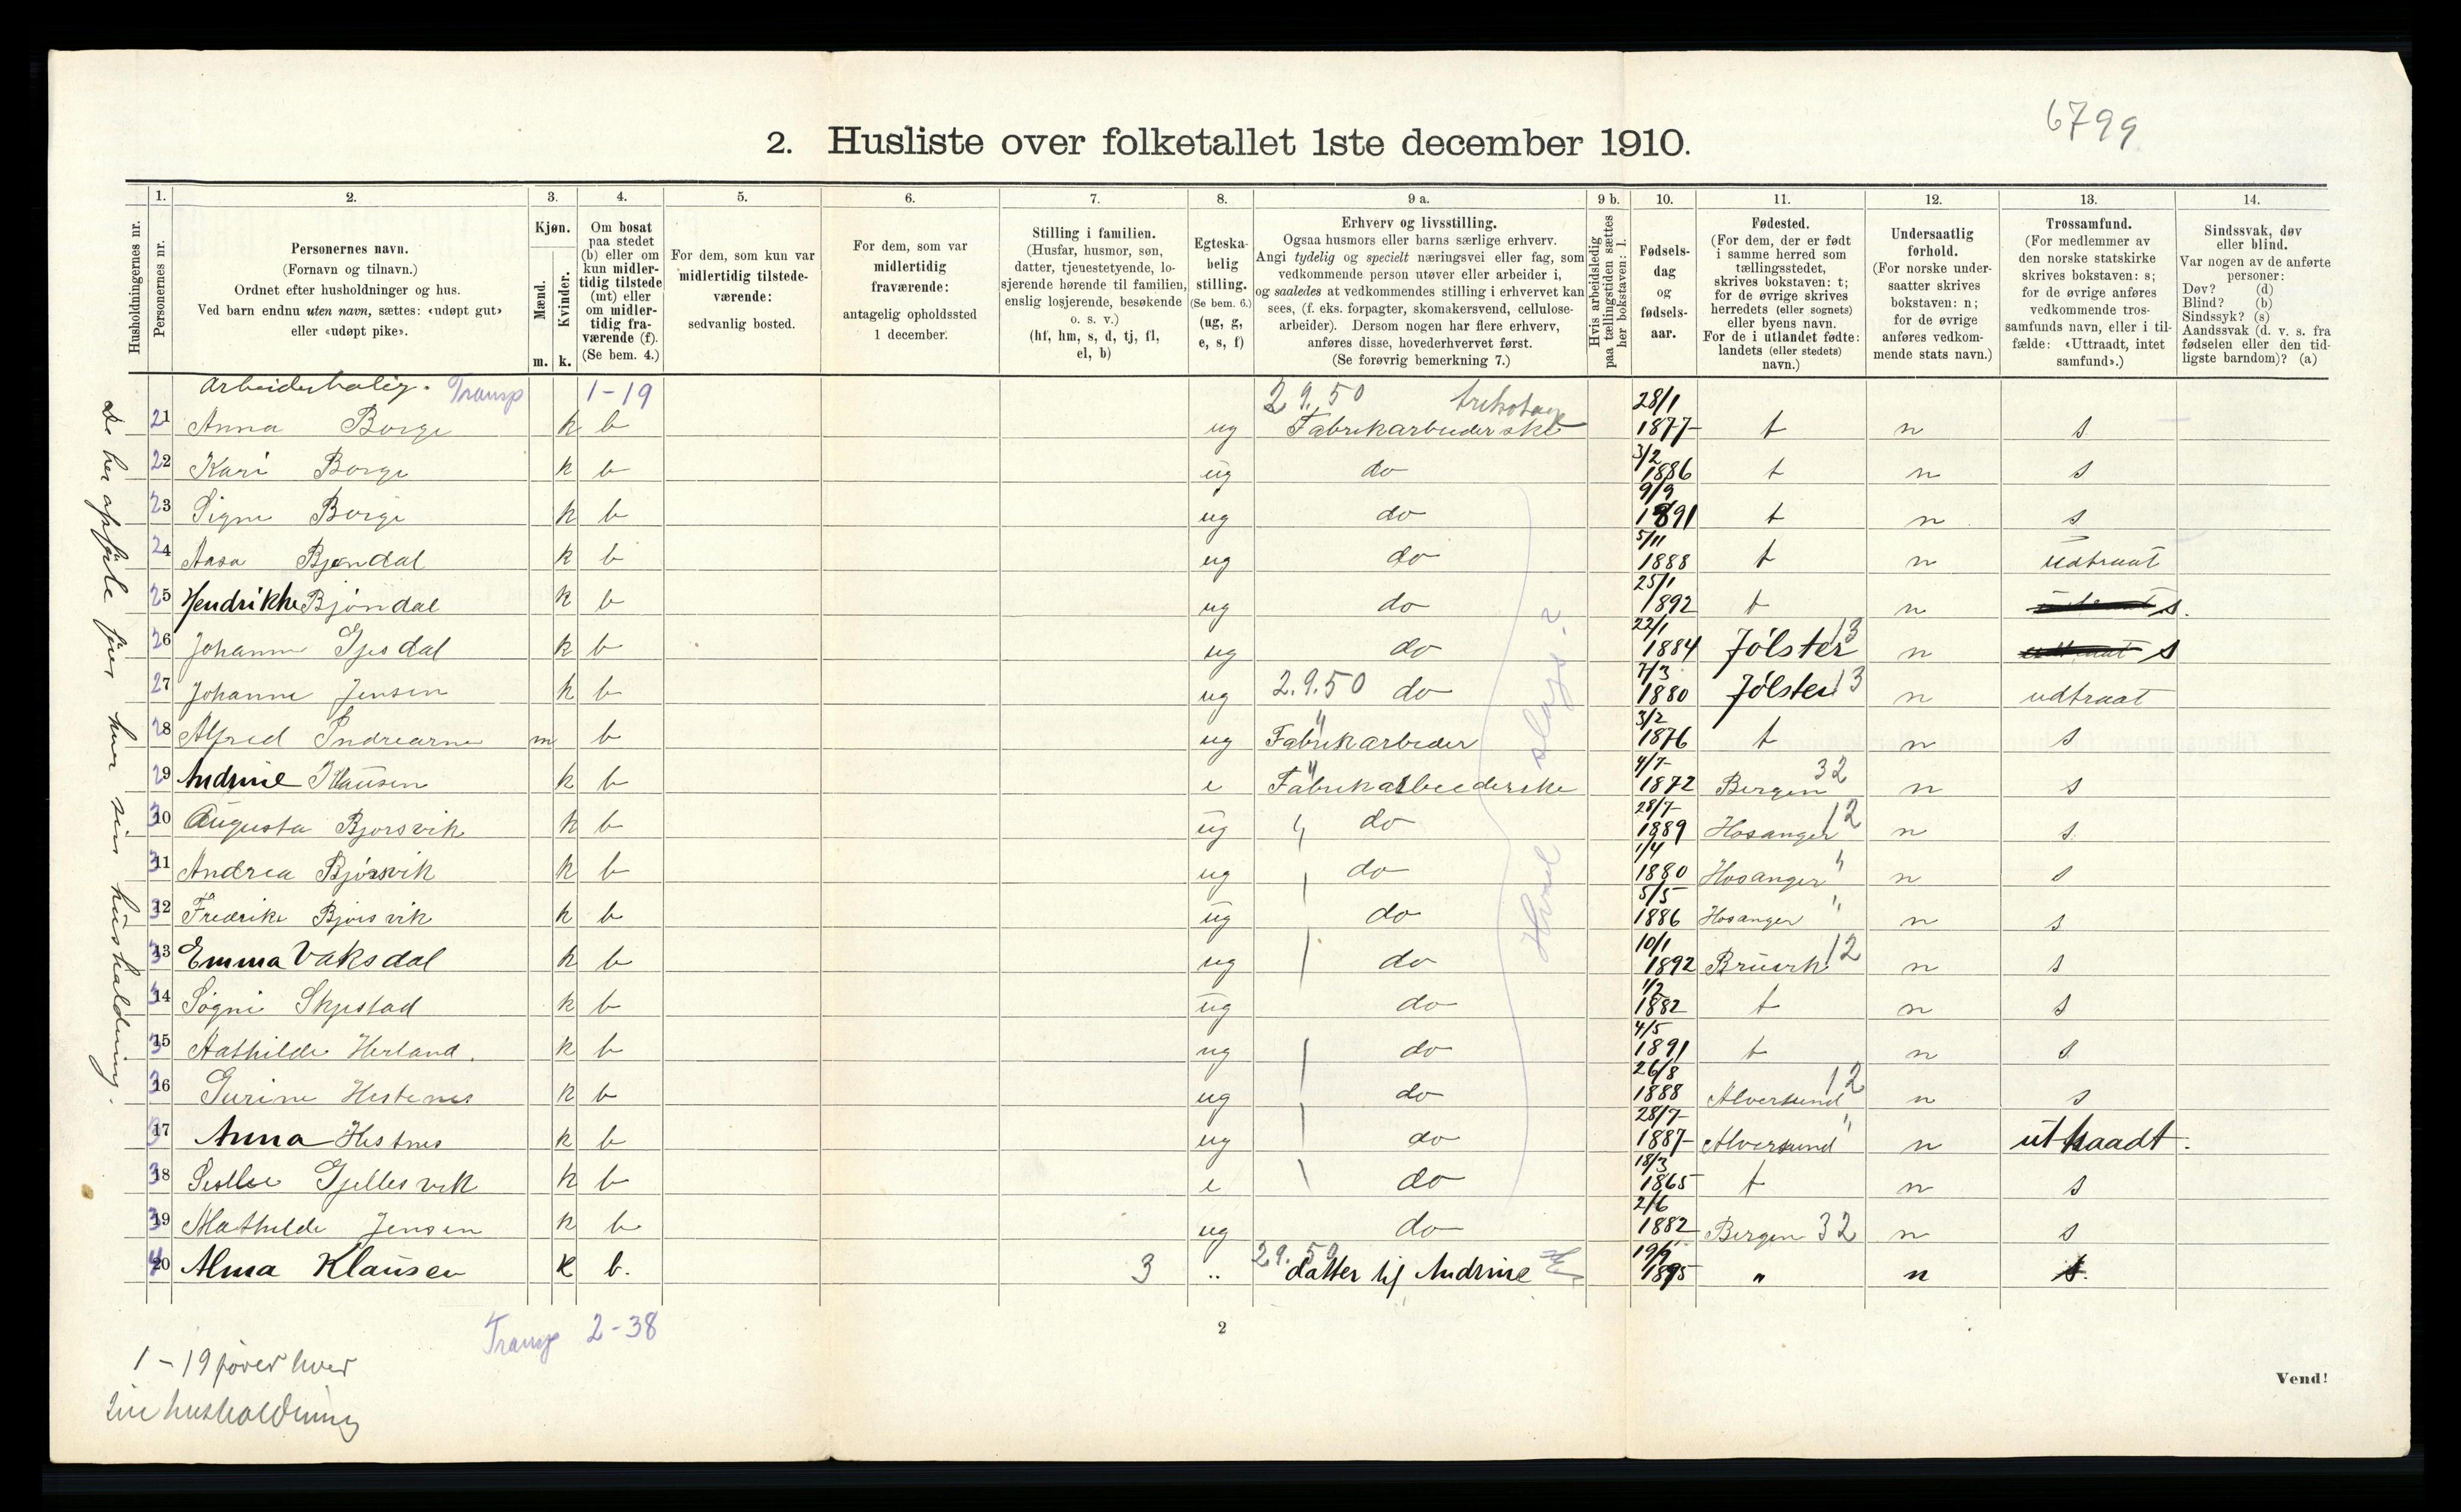 6799
2. Husliste over folketallet 1ste december 1910.
Husholdningernes nr.
1. Personernes nr.
2. Personernes navn.
(Fornavn og tilnavn.)
Ordnet efter husholdninger og hus.
Ved barn endnu uten navn, sættes: «udøpt gut»
eller «udøpt pike».
3. Kjøn.
Mænd. m.
Kvinder. k.
4. Om bosat
paa stedet
(b) eller om
kun midler-
tidig tilstede
(mt) eller
om midler-
tidig fra-
værende (f).
(Se bem. 4.)
5. For dem, som kun var
midlertidig tilstede-
værende:
sedvanlig bosted.
6. For dem, som var
midlertidig
fraværende:
antagelig opholdssted
1 december.
7. Stilling i familien.
(Husfar, husmor, søn,
datter, tjenestetyende, lo-
sjerende hørende til familien,
enslig losjerende, besøkende
o. s. v.)
(hf, hm, s, d, tj, fl,
el, b)
8. Egteska-
belig
stilling.
(Se bem. 6.)
(ug, g,
e, s, f)
9 a. Erhverv og livsstilling.
Ogsaa husmors eller barns særlige erhverv.
Angi tydelig og specielt næringsvei eller fag, som
vedkommende person utøver eller arbeider i,
og saaledes at vedkommendes stilling i erhvervet kan
sees, (f. eks. forpagter, skomakersvend, cellulose-
arbeider). Dersom nogen har flere erhverv,
anføres disse, hovederhvervet først.
(Se forøvrig bemerkning 7.)
9 b. Hvis arbeidsledig
paa tællingstiden sættes
her bokstaven: l.
10. Fødsels-
dag
og
fødsels-
aar.
11. Fødested.
(For dem, der er født
i samme herred som
tællingsstedet,
skrives bokstaven: t;
for de øvrige skrives
herredets (eller sognets)
eller byens navn.
For de i utlandet fødte:
landets (eller stedets)
navn.)
12. Undersaatlig
forhold.
(For norske under-
saatter skrives
bokstaven: n;
for de øvrige
anføres vedkom-
mende stats navn.)
13. Trossamfund.
(For medlemmer av
den norske statskirke
skrives bokstaven: s;
for de øvrige anføres
vedkommende tros-
samfunds navn, eller i til-
fælde: «Uttraadt, intet
samfund».)
14. Sindssvak, døv
eller blind.
Var nogen av de anførte
personer:
Døv? (d)
Blind? (b)
Sindssyk? (s)
Aandssvak (d. v. s. fra
fødselen eller den tid-
ligste barndom)? (a)
Arbeiderbolig. Transp 1-19 29.50 trikotage
21 Anna Borge k b ug Fabrikarbeiderske 28/1 1877 t n s
22 Kari Borge k b ug do 3/2 1886 t n s
23 Signe Borge k b ug do 9/9 1891 t n s
24 Aasa Bjøndal k b ug do 5/11 1888 t n udtraat
25 Hendrikke Bjöndal k b ug do 25/1 1892 t n s.
26 Johanne Gjesdal k b ug do 22/1 1884 Jølster 13 n s
27 Johanne Jensen k b ug 2.9.50 do 7/3 1880 Jølster 13 n udtraat
28 Alfred Indrearne m b ug " Fabrikarbeider 3/2 1876 t n s
29 Andrine Klausen k b e " Fabrikarbeiderske 4/7 1872 Bergen 32 n s
30 Augusta Bjorsvik k b ug " do 28/7 1889 Hosanger 12 n s.
11 Andrea Bjørsvik k b ug do 1/4 1880 Hosanger " n s
12 Fredrike Bjorsvik k b ug do 5/5 1886 Hosanger " n s
13 Emma Vaksdal k b ug do 10/1 1892 Bruvik 12 n s
14 Søgni Skjestad k b ug do 1/2 1882 t n s
15 Mathilde Herland. k b ug do 4/5 1891 t n s
16 Gurine Hestenes k b ug do 26/8 1888 Alversund 12 n s
17 Anna Hestnes k b ug do 28/7 1887 Alversund " n uttraadt.
18 Gjellesvik k b e do 18/3 1865 t n s
19 Mathilde Jensen k b ug do 2/6 1882 Bergen 32 n s
20 Alma Klausen k b. 3 .. 29.50 datter til Andrine 1895 " n s.
De her opførte fører hver sin husholdning.
Hvad slags?
Transp 2-38
2
1-19 fører hver
sin husholdning
Vend!